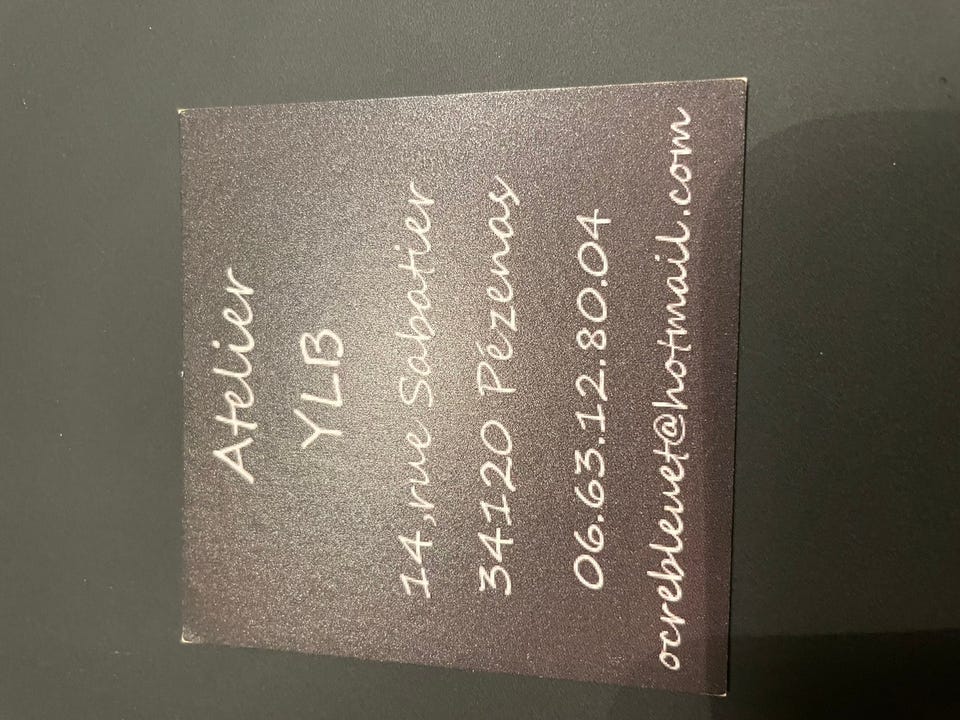 Atelier
YLB
14,rue Sabatier
34120 Pézenas
06.63.12.80.04
ocrebleuet@hotmail.com